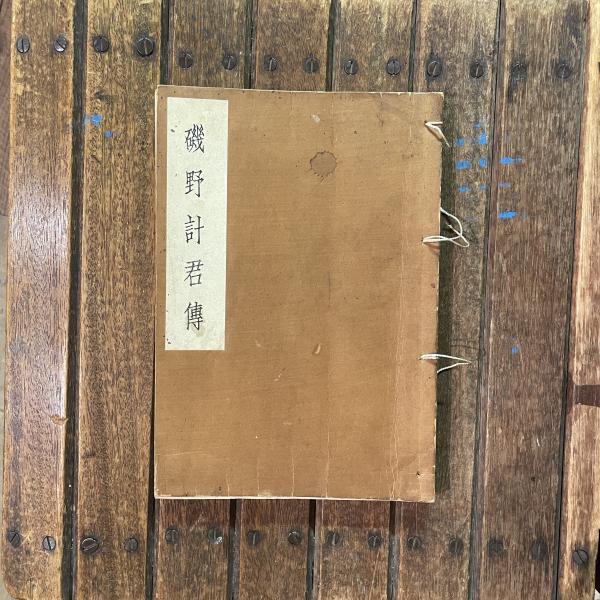 磯野計君傳